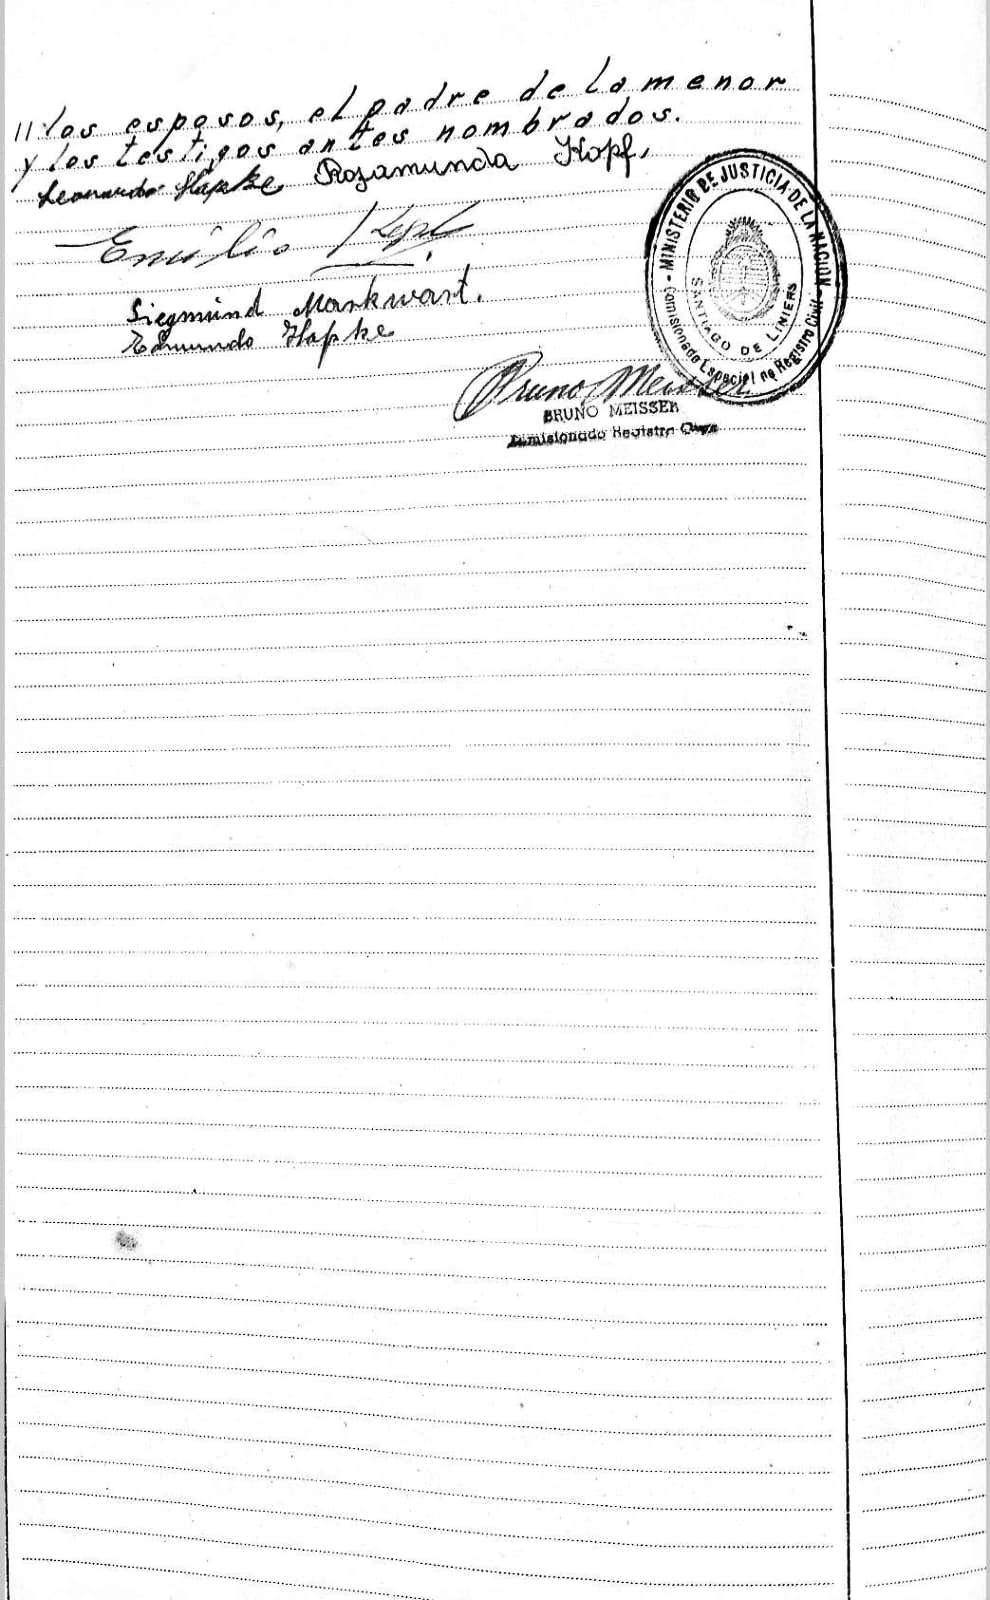 //los esposos, el padre de la menor
y los testigos antes nombrados.
Leonardo Hapke Rozamunda Kopf.
Emilio Kopf.
Siegmund Markwart.
Edmundo Hapke
MINISTERIO DE JUSTICIA DE LA NACION
SANTIAGO DE LINIERS
Comisionado Especial de Registro Civil
Bruno Meisser
BRUNO MEISSER
Comisionado Registro